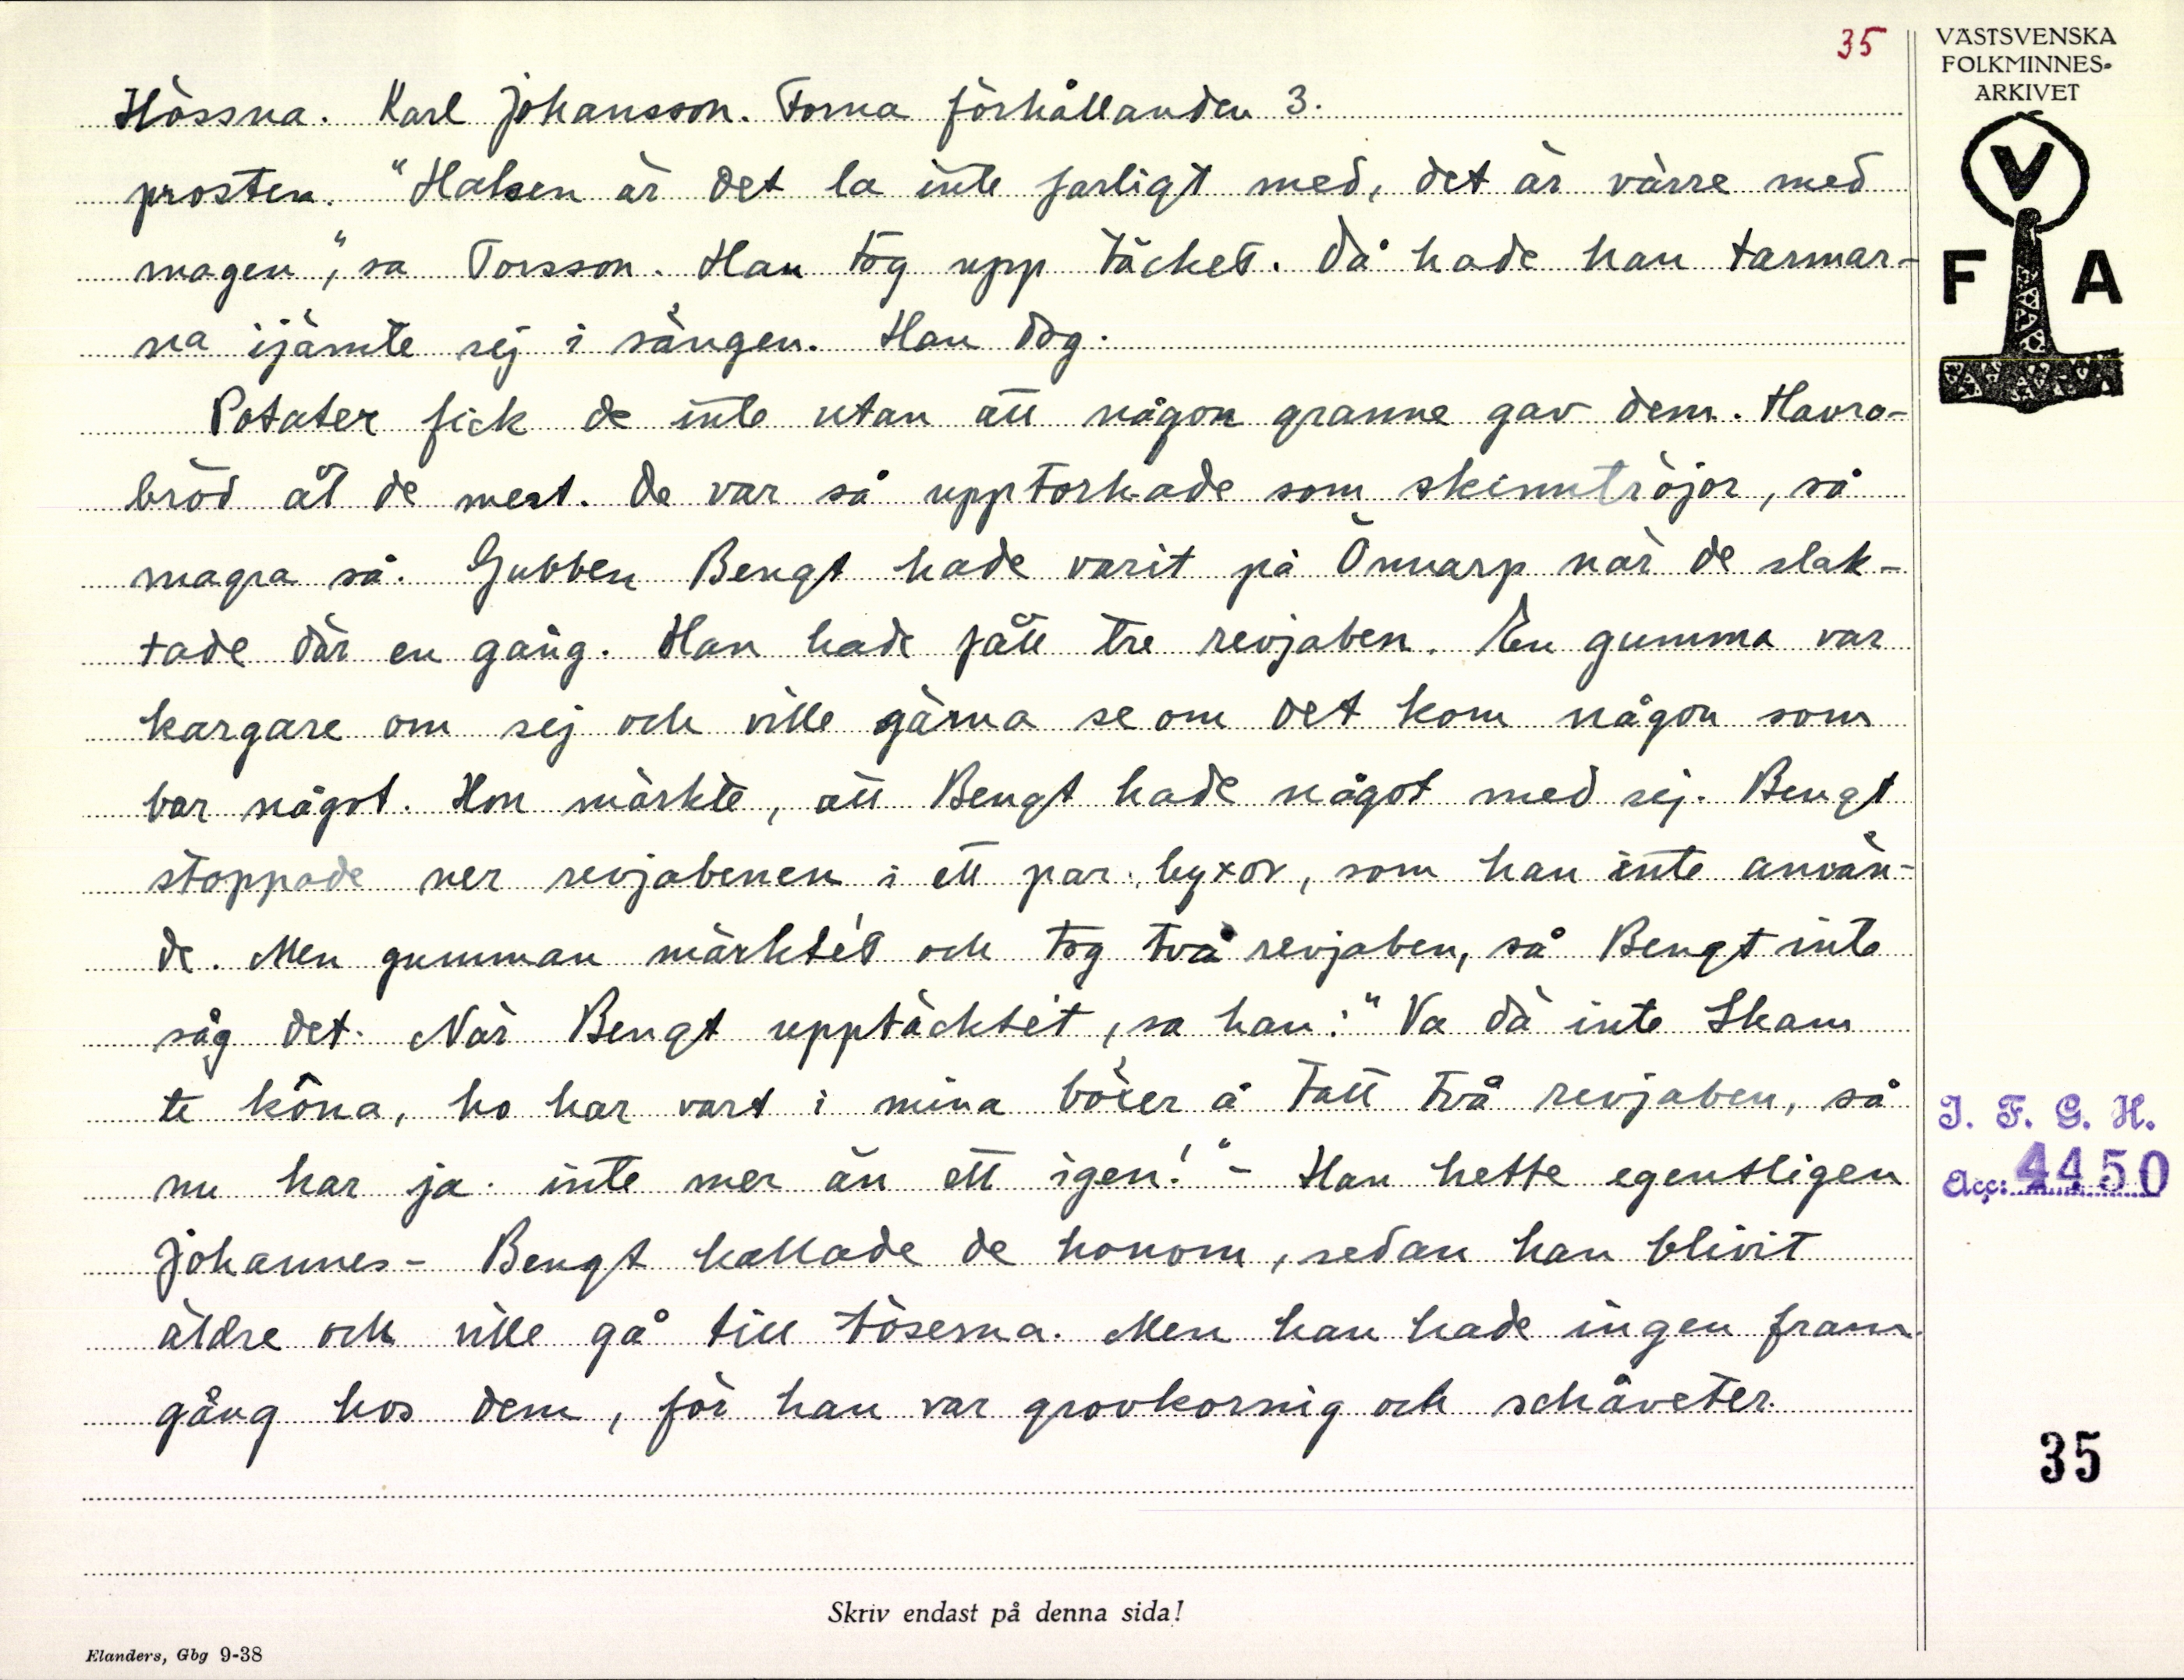 35
VÄSTSVENSKA
FOLKMINNES-
ARKIVET
V
F A
Hössna. Karl Johansson. Forna förhållanden 3.
prosten. "Halsen är det la inte farligt med, det är värre med
magen", sa Torsson. Han tog upp täcket. Då hade han tarmar-
na ijämte sej i sängen. Han dog.
Potater fick de inte utan att någon granne gav dem. Havra-
bröd åt de mest. De var så upptorkade som skinntröjor, så
magra så. Gubben Bengt hade varit på Önnarp när de slak-
tade där en gång. Han hade fått tre revjaben. En gumma var
kargare om sej och ville gärna se om det kom någon som
bar något. Hon märkte, att Bengt hade något med sej. Bengt
stoppade ner revjabenen i ett par byxor, som han inte använ-
de. Men gumman märkte't och tog två revjaben, så Bengt inte
såg det. När Bengt upptäckte't, sa han: "Va dä inte Skam
te kôna, ho har vart i mina böxer å tatt två revjaben, så
nu har ja inte mer än ett igen!" - Han hette egentligen
Johannes - Bengt kallade de honom, sedan han blivit
äldre och ville gå till töserna. Men han hade ingen fram-
gång hos dem, för han var grovkornig och schåveter.
I. F. G. H.
Acc: 4450
35
Skriv endast på denna sida!
Elanders, Gbg 9-38